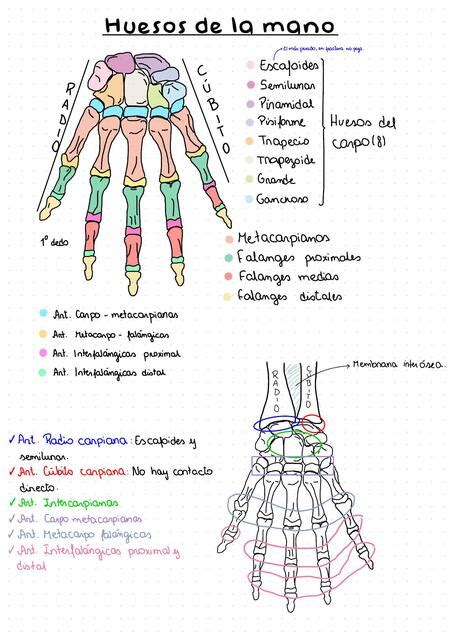 Huesos de la mano
RADIO
CÚBITO
1º dedo
El más pesado, en fractura no pega.
Escafoides
Semilunas
Piramidal
Pisiforme
Trapecio
Trapezoide
Grande
Ganchoso
Huesos del
carpo (8)
Metacarpianos
Falanges proximales
Falanges medias
Falanges distales
Art. Carpo - metacarpianas
Art. Metacarpo - falángicas
Art. Interfalángicas proximal
Art. Interfalángicas distal
RADIO
CÚBITO
Membrana interósea.
✓ Art. Radio carpiana: Escafoides y
semilunar.
✓ Art. Cúbito carpiana: No hay contacto
directo.
✓ Art. Intercarpianas
✓ Art. Carpo metacarpianas
✓ Art. Metacarpo falángicas
✓ Art. Interfalángicas proximal y
distal